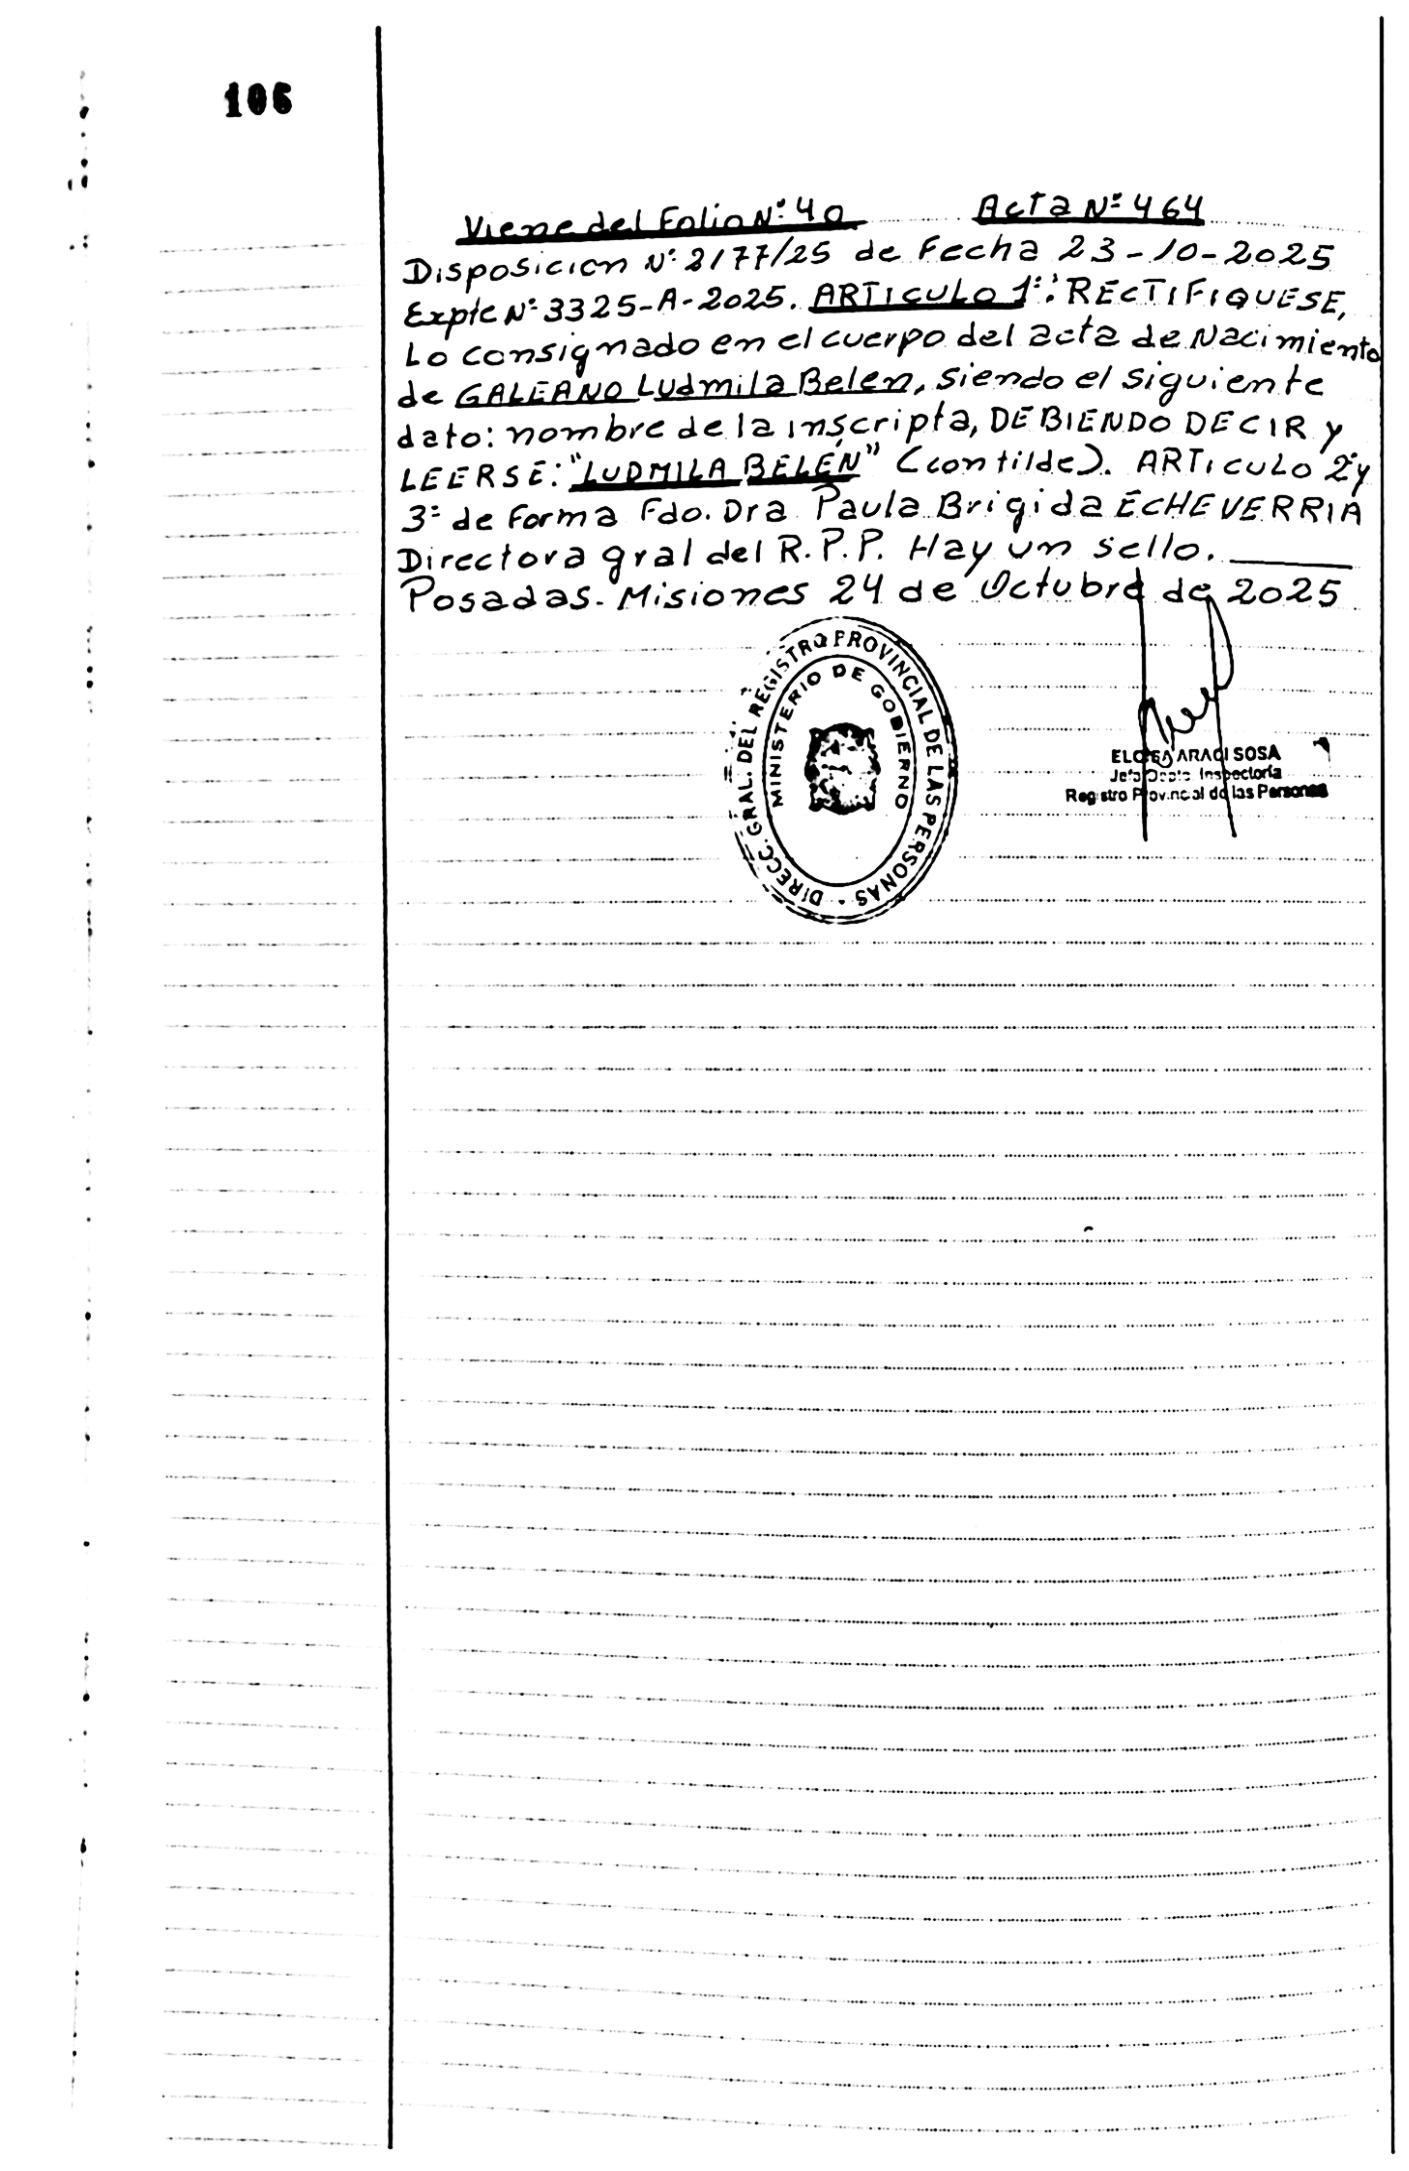 106
Viene del Folio Nº 40 Acta Nº 464
Disposicion Nº 2177/25 de Fecha 23-10-2025
Expte Nº 3325-A-2025. ARTICULO 1º: RECTIFIQUESE,
Lo consignado en el cuerpo del acta de Nacimiento
de GALEANO Ludmila Belen, siendo el siguiente
dato: nombre de la inscripta, DEBIENDO DECIR y
LEERSE: "LUDMILA BELÉN" (con tilde). ARTICULO 2º y
3º de Forma Fdo. Dra Paula Brigida ECHEVERRIA
Directora gral del R.P.P. Hay un sello.
Posadas. Misiones 24 de Octubre de 2025
DIRECC. GRAL. DEL REGISTRO PROVINCIAL DE LAS PERSONAS -
MINISTERIO DE GOBIERNO
ELOISA ARACI SOSA
Jefa Dpto. Inspectoría
Registro Provincial de las Personas